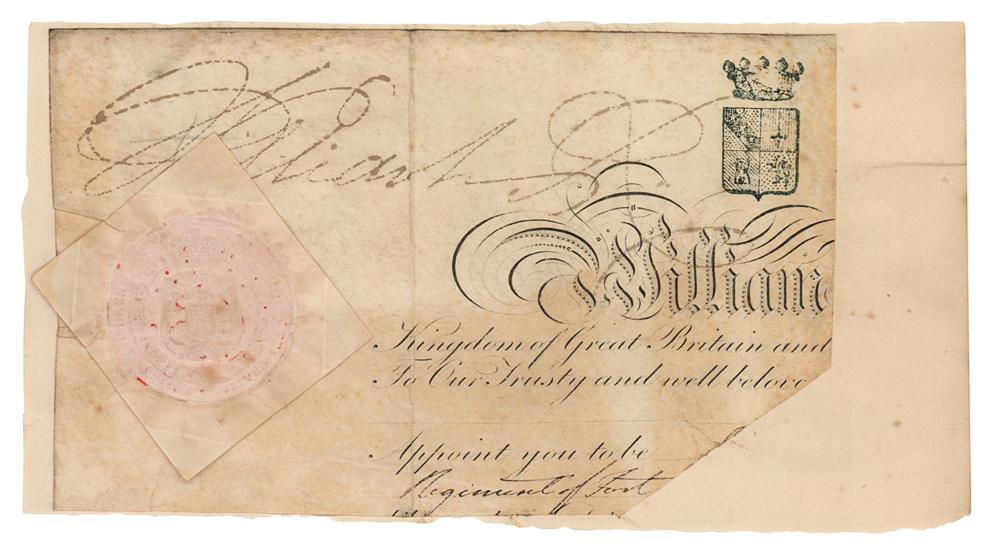 William R
William
Kingdom of Great Britain and
To Our Trusty and well belove
Appoint you to be
Regiment of Foot